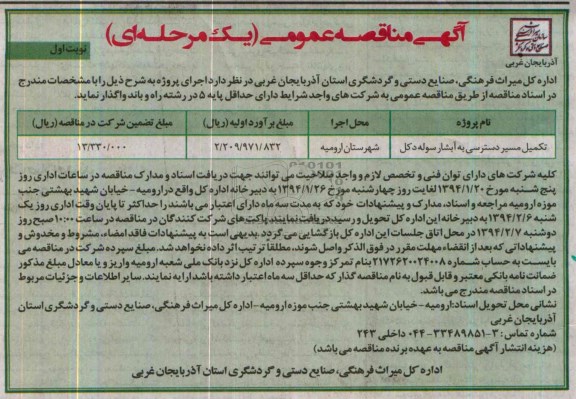 آگهی مناقصه عمومی (یک مرحله‌ای)
نوبت اول
آذربایجان غربی
اداره کل میراث فرهنگی، صنایع دستی و گردشگری استان آذربایجان غربی در نظر دارد اجرای پروژه به شرح ذیل را با مشخصات مندرج
در اسناد مناقصه از طریق مناقصه عمومی به شرکت های واجد شرایط دارای حداقل پایه ۵ در رشته راه و باند واگذار نماید.
نام پروژه محل اجرا مبلغ برآورد اولیه (ریال) مبلغ تضمین شرکت در مناقصه (ریال)
تکمیل مسیر دسترسی به آبشار سوله دکل شهرستان ارومیه ۲/۲۰۹/۹۷۱/۸۳۲ ۱۳/۳۳۰/۰۰۰
کلیه شرکت های دارای توان فنی و تخصص لازم و واجد صلاحیت می توانند جهت دریافت اسناد و مدارک مناقصه در ساعات اداری روز
پنج شنبه مورخ ۱۳۹۴/۱/۲۰ لغایت روز چهارشنبه مورخ ۱۳۹۴/۱/۲۶ به دبیرخانه اداره کل واقع در ارومیه - خیابان شهید بهشتی جنب
موزه ارومیه مراجعه و اسناد، مدارک و پیشنهادات خود که به مدت سه ماه دارای اعتبار می باشند را حداکثر تا پایان وقت اداری روز یک
شنبه ۱۳۹۴/۲/۶ به دبیرخانه این اداره کل تحویل و رسید دریافت نمایند پاکت های شرکت کنندگان در مناقصه در ساعت ۱۰:۰۰ صبح روز
دوشنبه ۱۳۹۴/۲/۷ در محل اتاق جلسات این اداره کل بازگشایی می گردد. بدیهی است به پیشنهادات فاقد امضاء، مشروط و مخدوش و
پیشنهاداتی که بعد از انقضاء مهلت مقرر در فوق الذکر واصل شوند، مطلقا ترتیب اثر داده نخواهد شد. مبلغ سپرده شرکت در مناقصه می
بایست به حساب شماره ۲۱۷۲۶۲۰۰۲۴۰۰۸ بنام تمرکز وجوه سپرده اداره کل نزد بانک ملی شعبه ارومیه واریز و یا معادل مبلغ مذکور
ضمانت نامه بانکی معتبر و قابل قبول به نام مناقصه گذار که حداقل سه ماه اعتبار داشته باشد ارایه نمایند. سایر اطلاعات و جزئیات مربوط
در اسناد مناقصه مندرج می باشد.
نشانی محل تحویل اسناد: ارومیه - خیابان شهید بهشتی جنب موزه ارومیه - اداره کل میراث فرهنگی، صنایع دستی و گردشگری استان
آذربایجان غربی
شماره تماس: ۳-۳۳۴۸۹۸۵۱-۰۴۴ داخلی ۲۴۳
(هزینه انتشار آگهی مناقصه به عهده برنده مناقصه می باشد)
اداره کل میراث فرهنگی، صنایع دستی و گردشگری استان آذربایجان غربی